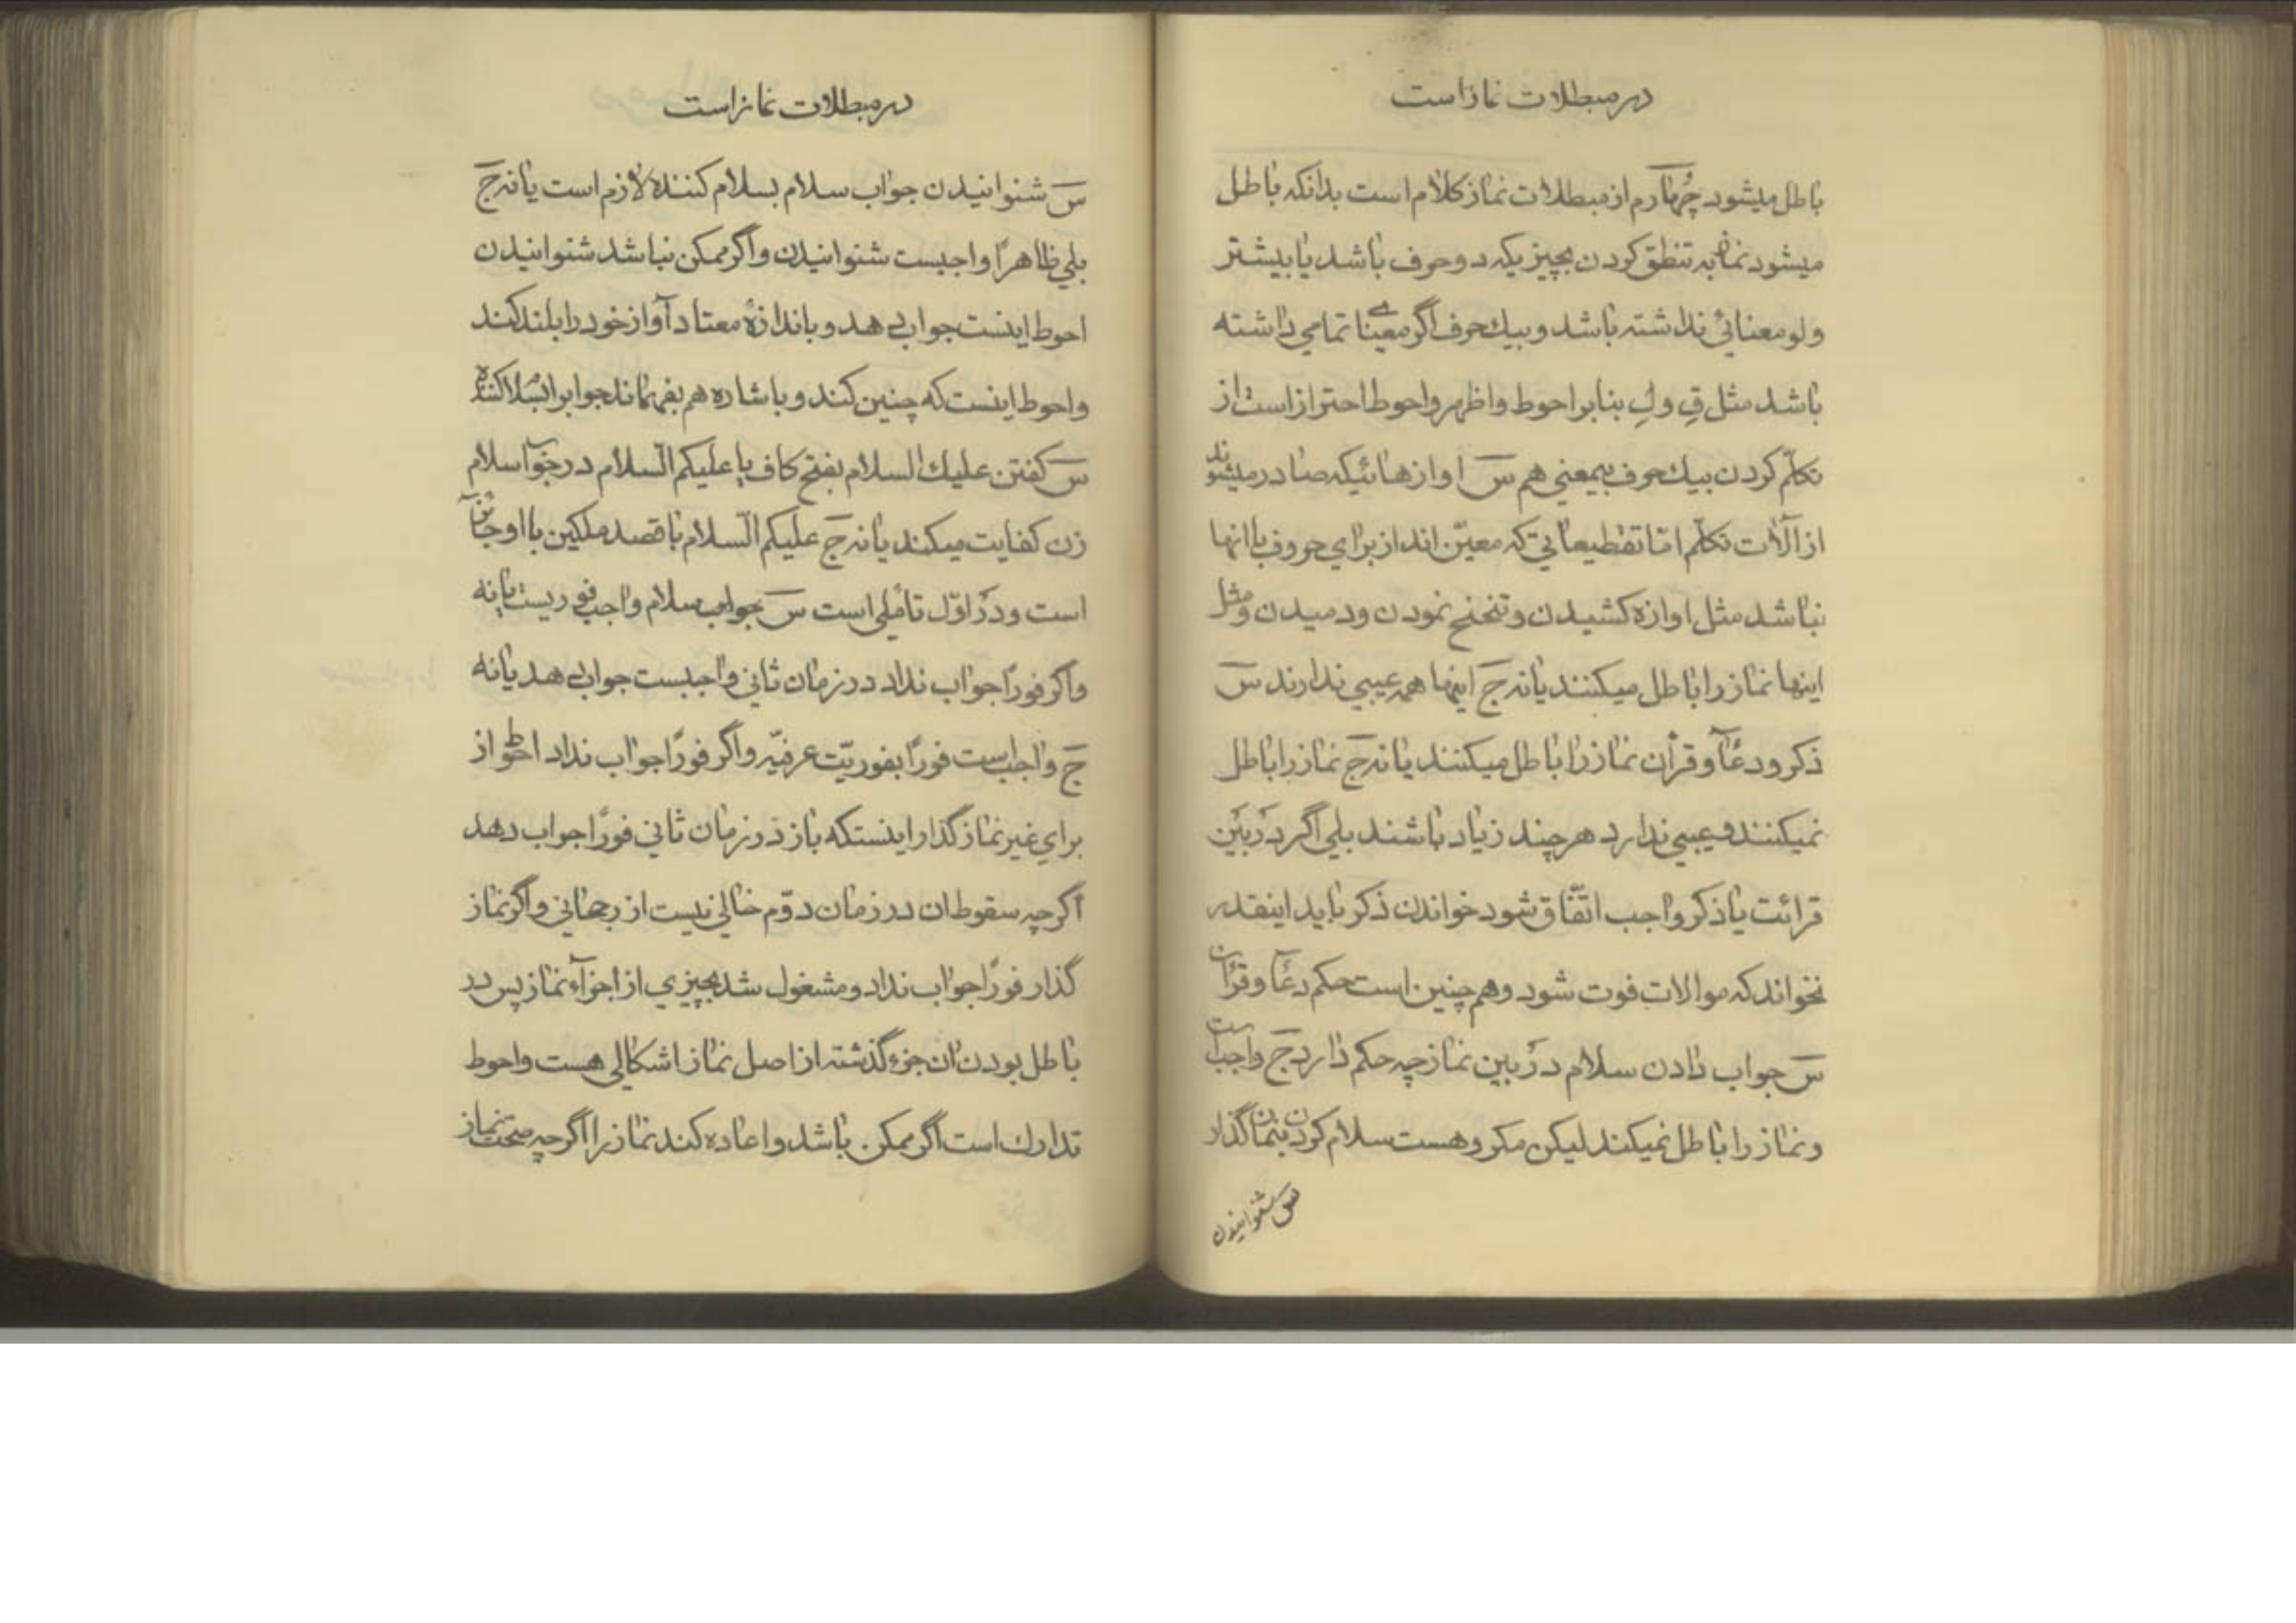 در مبطلات نماز است
باطل میشود چهارم از مبطلات نماز کلام است بدانکه باطل
میشود نماز به تنطق کردن بچیزیکه دو حرف باشد یا بیشتر
ولو معنائی نداشته باشد و بیك حرف اگر معنای تمامی داشته
باشد مثل قِ و لِ بنابر احوط و اظهر و احوط احتراز است از
تکلّم کردن بیك حرف بیمعنی هم سَ اوازهائیکه صادر میشوند
از آلات تکلّم امّا تقطیعاتی که معیّن اند از برای حروف با انها
نباشد مثل اوازه کشیدن و تنحنح نمودن و دمیدن و مثل
اینها نماز را باطل میکنند یا نه جَ اینها همه عیبی ندارند سَ
ذکر و دعآ و قرآن نماز را باطل میکنند یا نه جَ نماز را باطل
نمیکنند و عیبی ندارد هر چند زیاد باشند بلی اگر در بین
قرائت یا ذکر واجب اتّفاق شود خواندن ذکر باید اینقدر
نخواند که موالات فوت شود و هم چنین است حکم دعآ و قرآن
سَ جواب دادن سلام در بین نماز چه حکم دارد جَ واجب است
و نماز را باطل نمیکند لیکن مکروهست سلام کردن بنماز گذار
س شنوانیدن
در مبطلات نماز است
سَ شنوانیدن جواب سلام بسلام کننده لازم است یا نه جَ
بلی ظاهرًا واجبست شنوانیدن و اگر ممکن نباشد شنوانیدن
احوط اینست جواب بدهد و باندازهٔ معتاد آواز خود را بلند کند
و احوط اینست که چنین کند و باشاره هم بفهماند جواب را بسلام کننده
سَ گفتن علیك السلام بفتح کاف یا علیکم السّلام در جواب سلام
زن کفایت میکند یا نه جَ علیکم السّلام با قصد ملکین با او جائز
است و در اوّل تأملی است سَ جواب سلام واجب فوریست یا نه
و اگر فورًا جواب نداد در زمان ثانی واجبست جواب بدهد یا نه
جَ واجب است فورًا بفوریّت عرفیّه و اگر فورًا جواب نداد احوط از
برای غیر نماز گذار اینستکه باز در زمان ثانی فورًا جواب دهد
اگر چه سقوط ان در زمان دوّم خالی نیست از رجحانی و اگر نماز
گذار فورًا جواب نداد و مشغول شد بچیزی از اجزآء نماز پس در
باطل بودن ان جزء گذشته از اصل نماز اشکالی هست و احوط
تدارك است اگر ممکن باشد و اعاده کند نماز را اگر چه صحت نماز